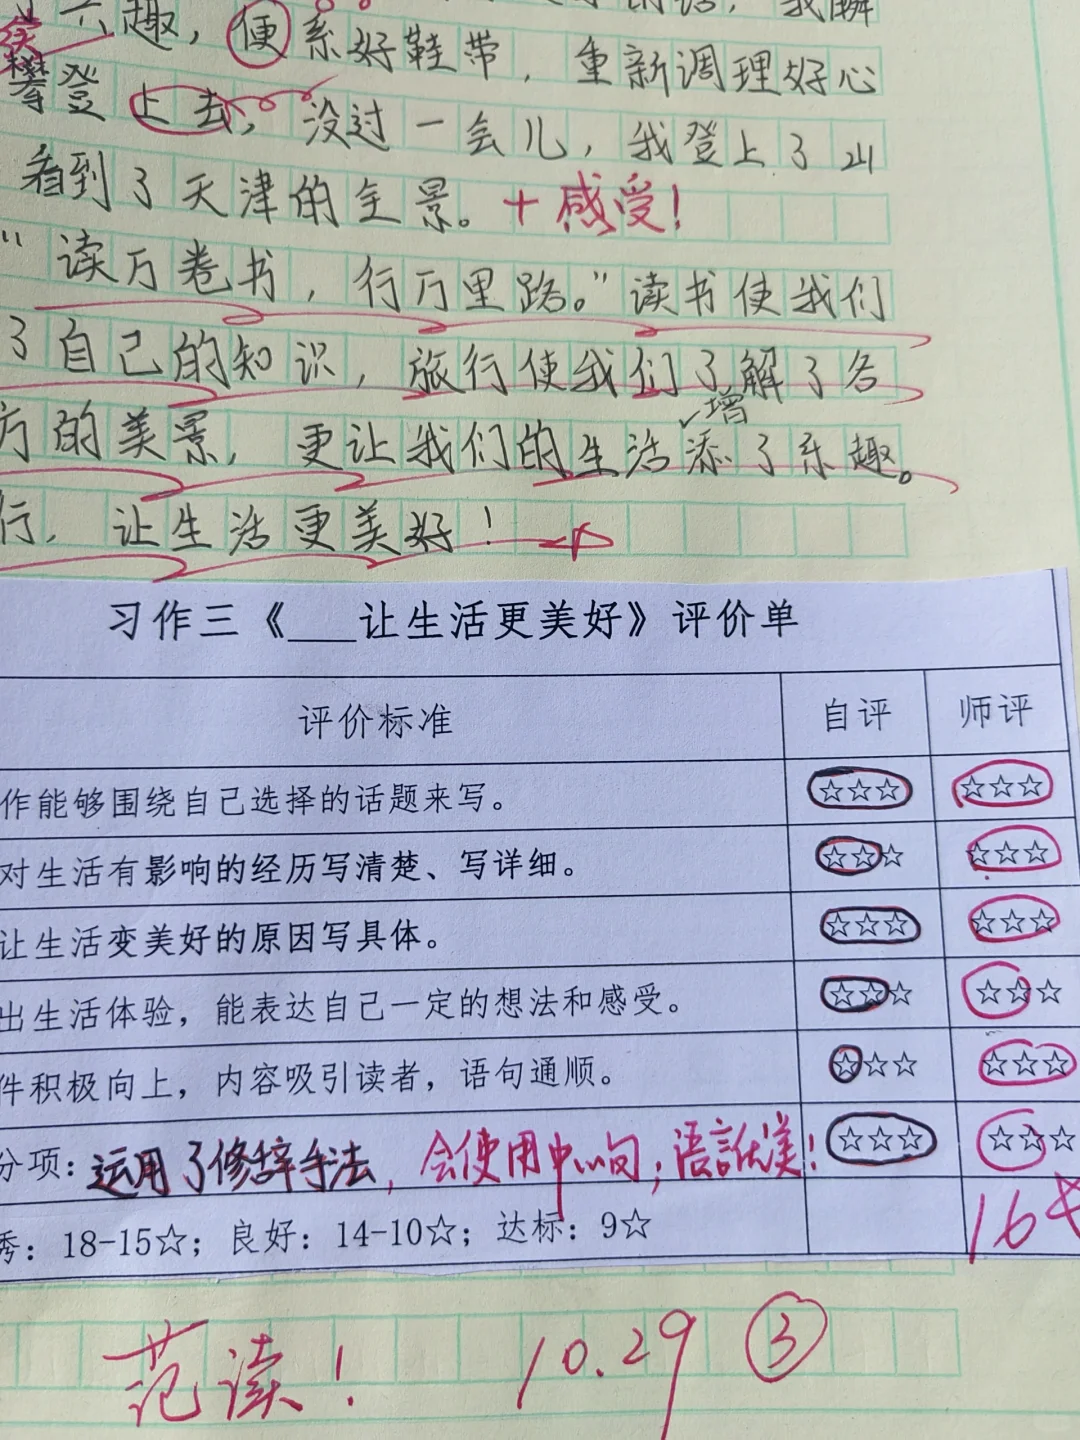 趣，便系好鞋带，重新调理好心
攀登上去，没过一会儿，我登上了山
看到了天津的全景。＋感受！
“读万卷书，行万里路。”读书使我们
了自己的知识，旅行使我们了解了各
方的美景，更让我们的生活添了乐趣。
增
行，让生活更美好！
习作三《___让生活更美好》评价单
评价标准 自评 师评
作能够围绕自己选择的话题来写。 ☆☆☆ ☆☆☆
对生活有影响的经历写清楚、写详细。 ☆☆☆ ☆☆☆
让生活变美好的原因写具体。 ☆☆☆ ☆☆☆
出生活体验，能表达自己一定的想法和感受。 ☆☆☆ ☆☆☆
件积极向上，内容吸引读者，语句通顺。 ☆☆☆ ☆☆☆
分项：运用了修辞手法，会使用中心句，语言优美！ ☆☆☆ ☆☆☆
秀：18-15☆；良好：14-10☆；达标：9☆ 16
范读！ 10.29 ③